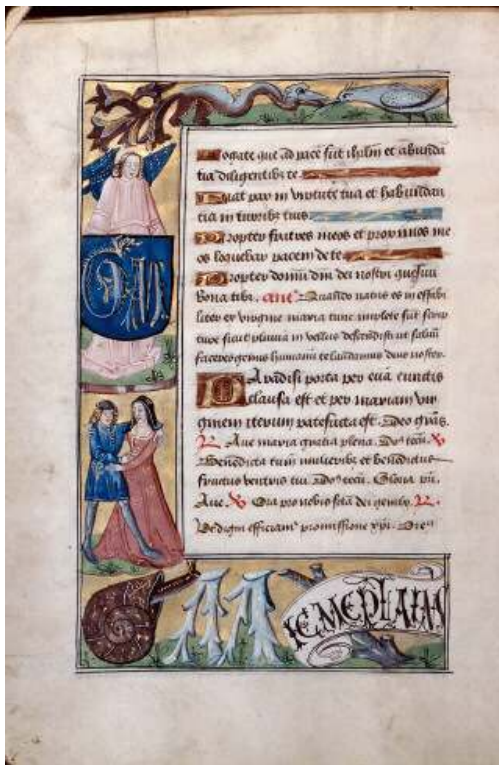 Rogate que ad pacē sūt ihrlm et abundā
tia diligentibz te
Fiat pax in virtute tua et habundan
tia in turribz tuis
Propter fratres meos et proximos me
os loquebar pacem de te
Propter domū dm̄ dei nostri quesiui
bona tibi. anē Quando natus es in effabi
liter ex virgine maria tunc implete sūt scrip
ture sicut pluuia in vellus descendisti ut saluū
faceres genus humanū te laudamus deus noster
Paradisi porta per euā cunctis
clausa est et per mariam vir
ginem iterum patefacta est. Deo grās.
Aue maria gratia plena. Dōs tecū.
Benedicta tu in mulieribz et benedictus
fructus ventris tui. Gloria
Aue. Ora pro nobis scā dei genitz.
Vt digni efficiam promissione xpi.
JE ME PLAIN